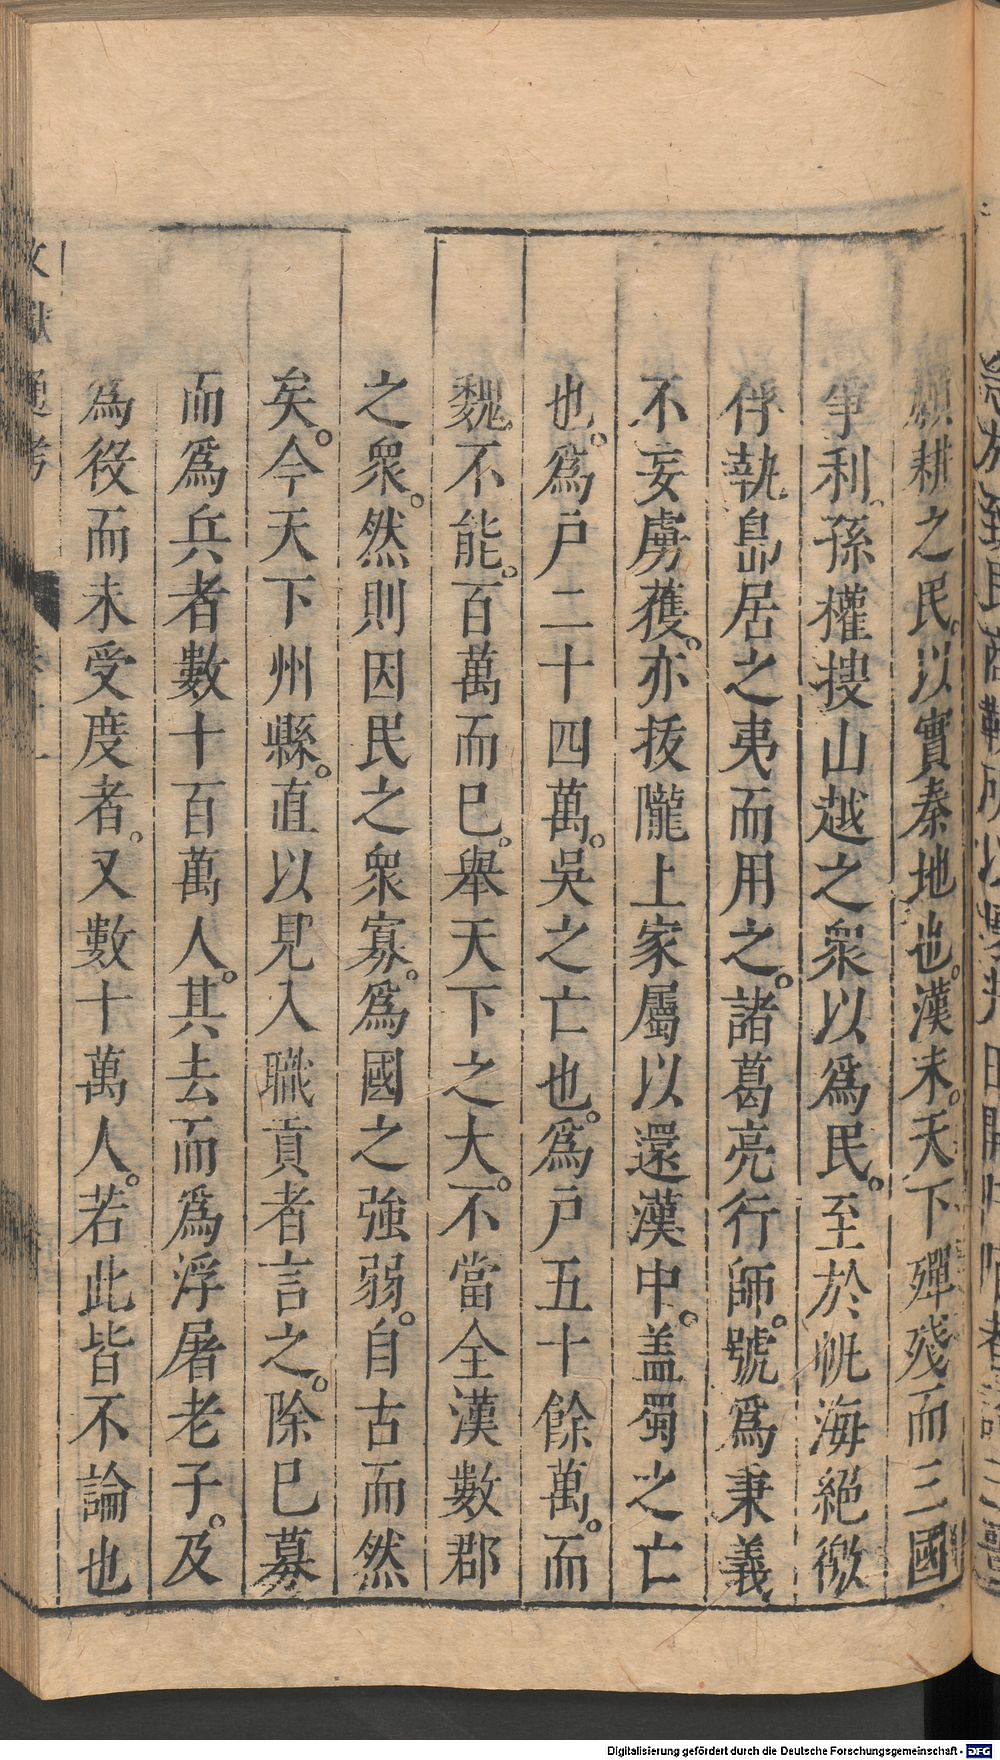 願耕之民。以實秦地也。漢末。天下殫殘而三國
爭利。孫權搜山越之衆以爲民。至於帆海絕徼
俘執島居之夷而用之。諸葛亮行師。號爲秉義
不妄虜獲。亦拔隴上家屬以還漢中。盖蜀之亡
也。爲戸二十四萬。吳之亡也。爲戸五十餘萬。而
魏不能。百萬而巳。舉天下之大。不當全漢數郡
之衆。然則因民之衆寡。爲國之強弱。自古而然
矣。今天下州縣。直以見入職貢者言之。除巳募
而爲兵者數十百萬人。其去而爲浮屠老子。及
爲役而未受度者。又數十萬人。若此皆不論也
文獻通考
Digitalisierung gefördert durch die Deutsche Forschungsgemeinschaft - DFG